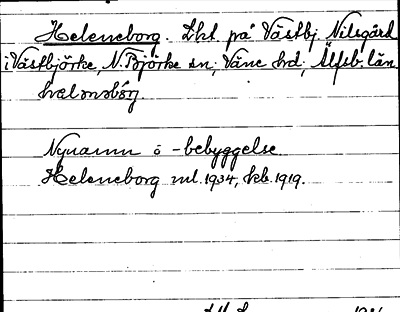 Heleneborg. Lht på Västbj. Nilsgård
i Västbjörke, N. Björke sn, Väne hd, Älfsb. län.
Nynamn o -bebyggelse.
Heleneborg ml. 1934, kb. 1919.